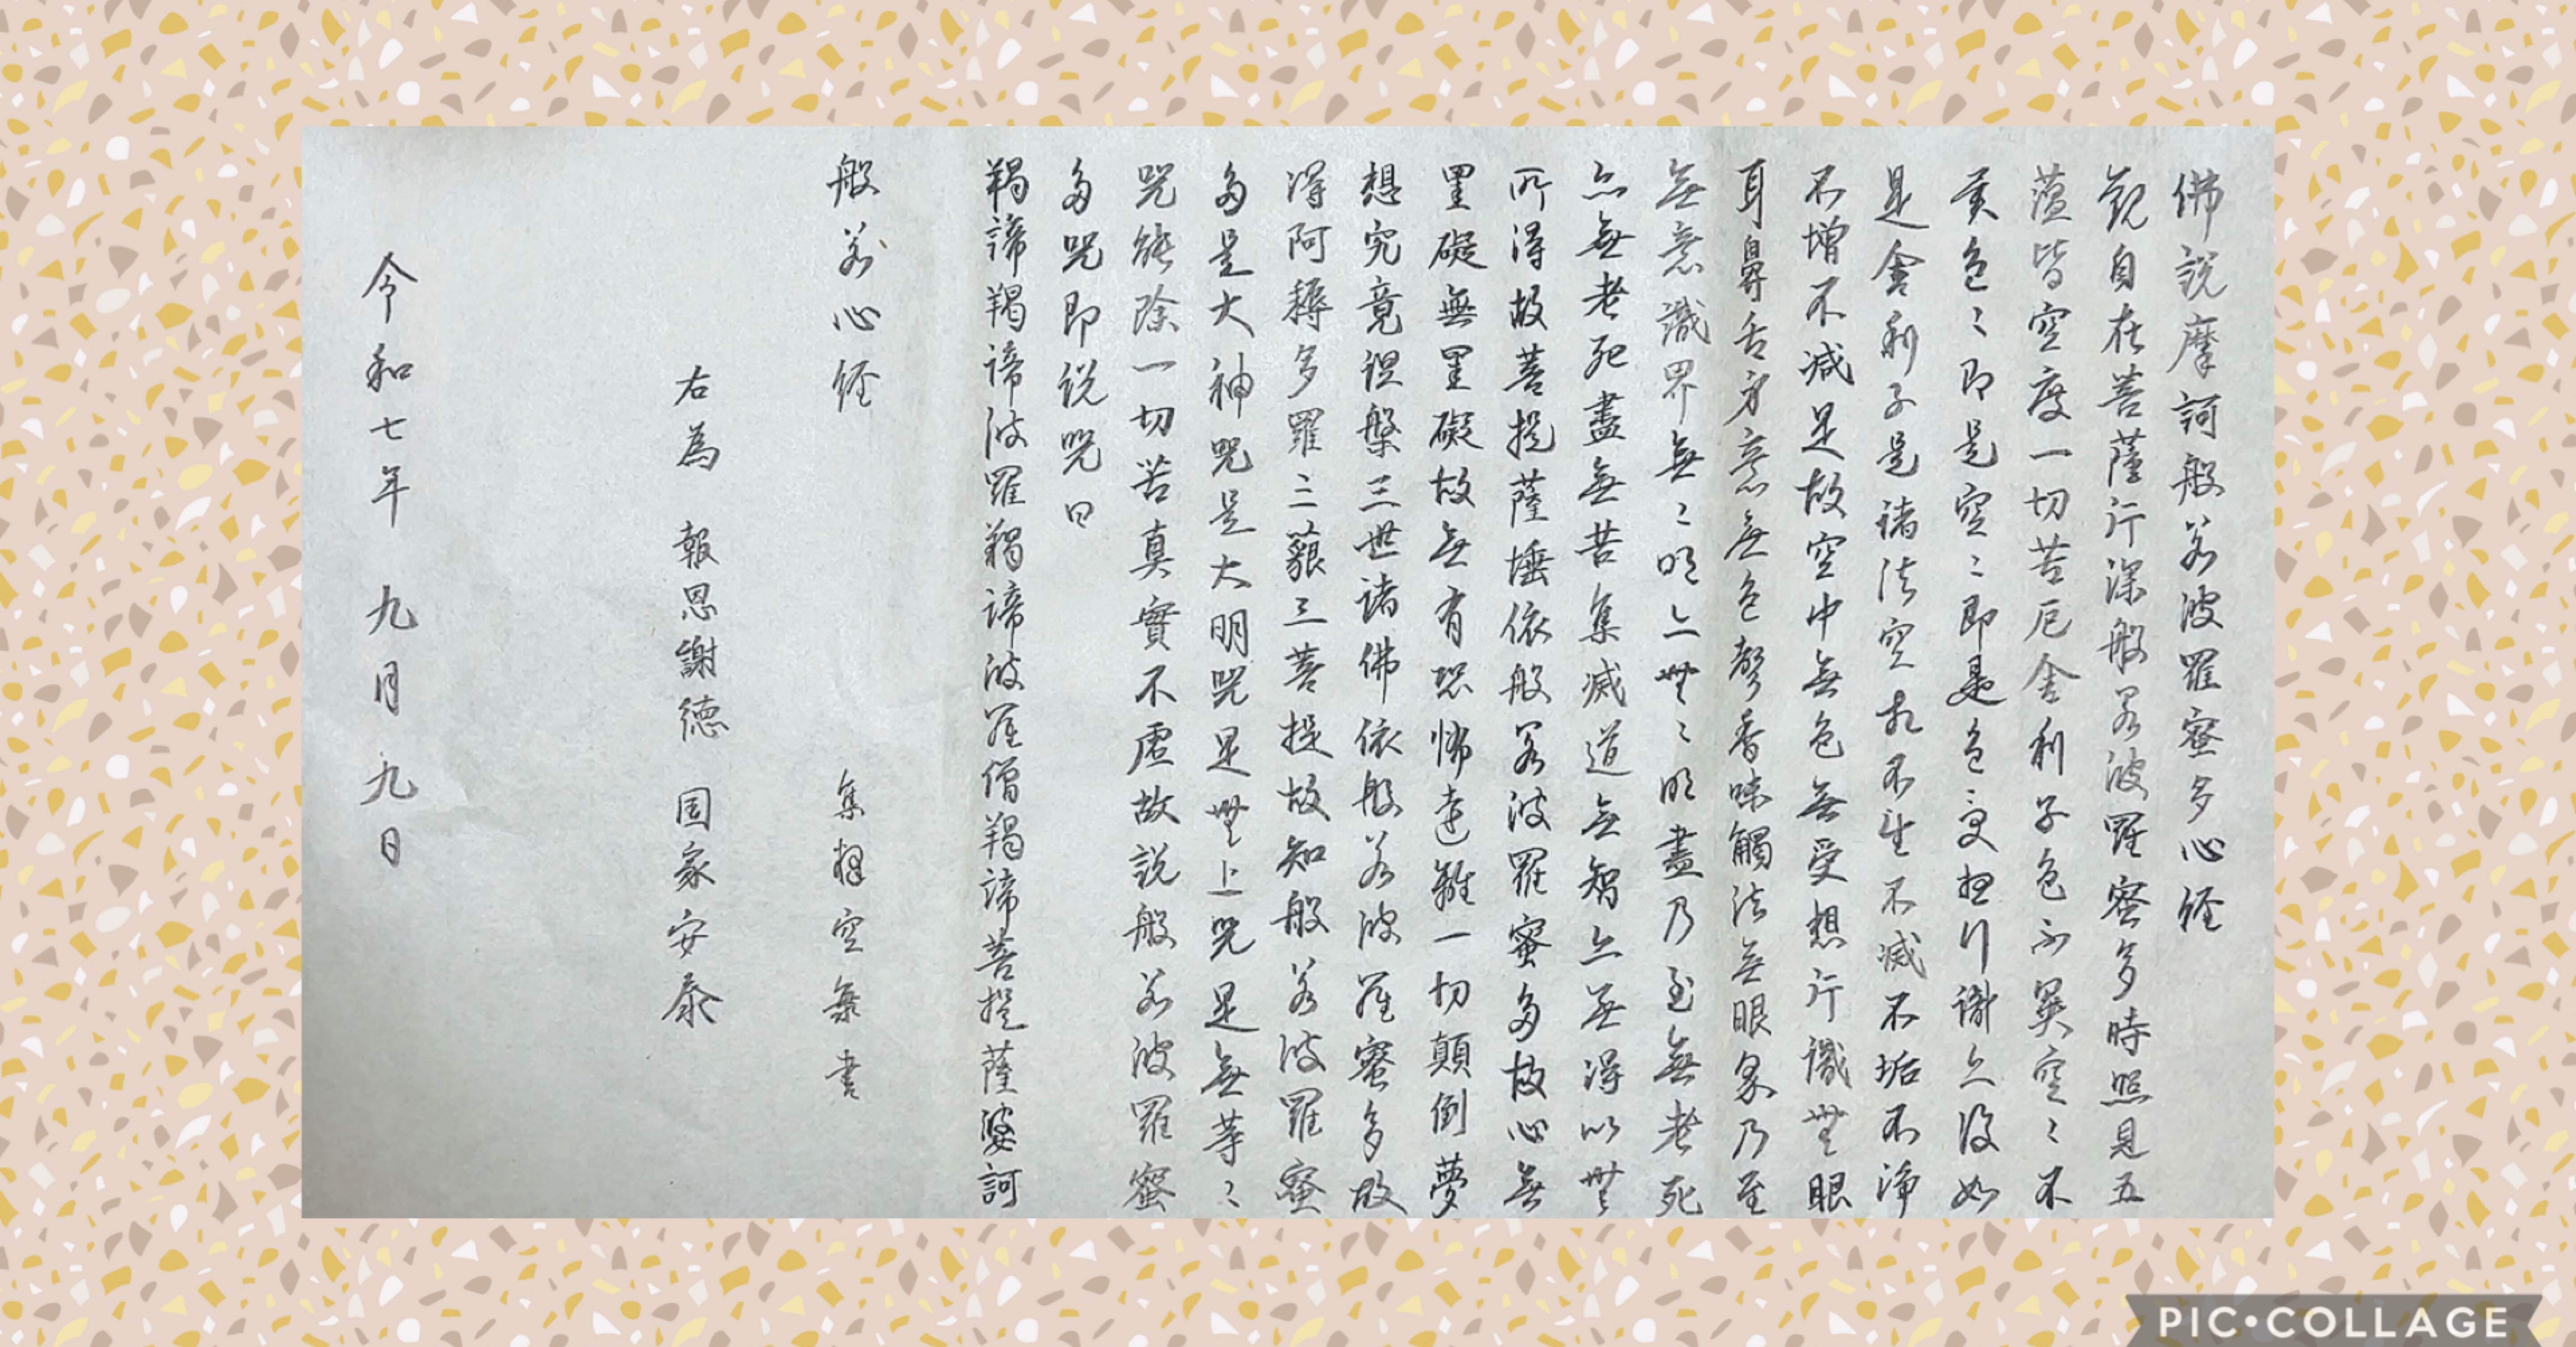 佛説摩訶般若波羅蜜多心経
観自在菩薩行深般若波羅蜜多時照見五
蘊皆空度一切苦厄舎利子色不異空〻不
異色〻即是空〻即是色受想行識亦復如
是舎利子是諸法空相不生不滅不垢不浄
不増不減是故空中無色無受想行識無眼
耳鼻舌身意無色聲香味觸法無眼界乃至
無意識界無〻明亦無〻明盡乃至無老死
亦無老死盡無苦集滅道無智亦無得以無
所得故菩提薩埵依般若波羅蜜多故心無
罣礙無罣礙故無有恐怖遠離一切顛倒夢
想究竟涅槃三世諸佛依般若波羅蜜多故
得阿耨多羅三藐三菩提故知般若波羅蜜
多是大神咒是大明咒是無上咒是無等〻
咒能除一切苦真實不虚故説般若波羅蜜
多咒即説咒曰
羯諦羯諦波羅羯諦波羅僧羯諦菩提薩婆訶
般若心経
空無書
右為 報恩謝徳 国家安泰
令和七年 九月九日
PIC•COLLAGE